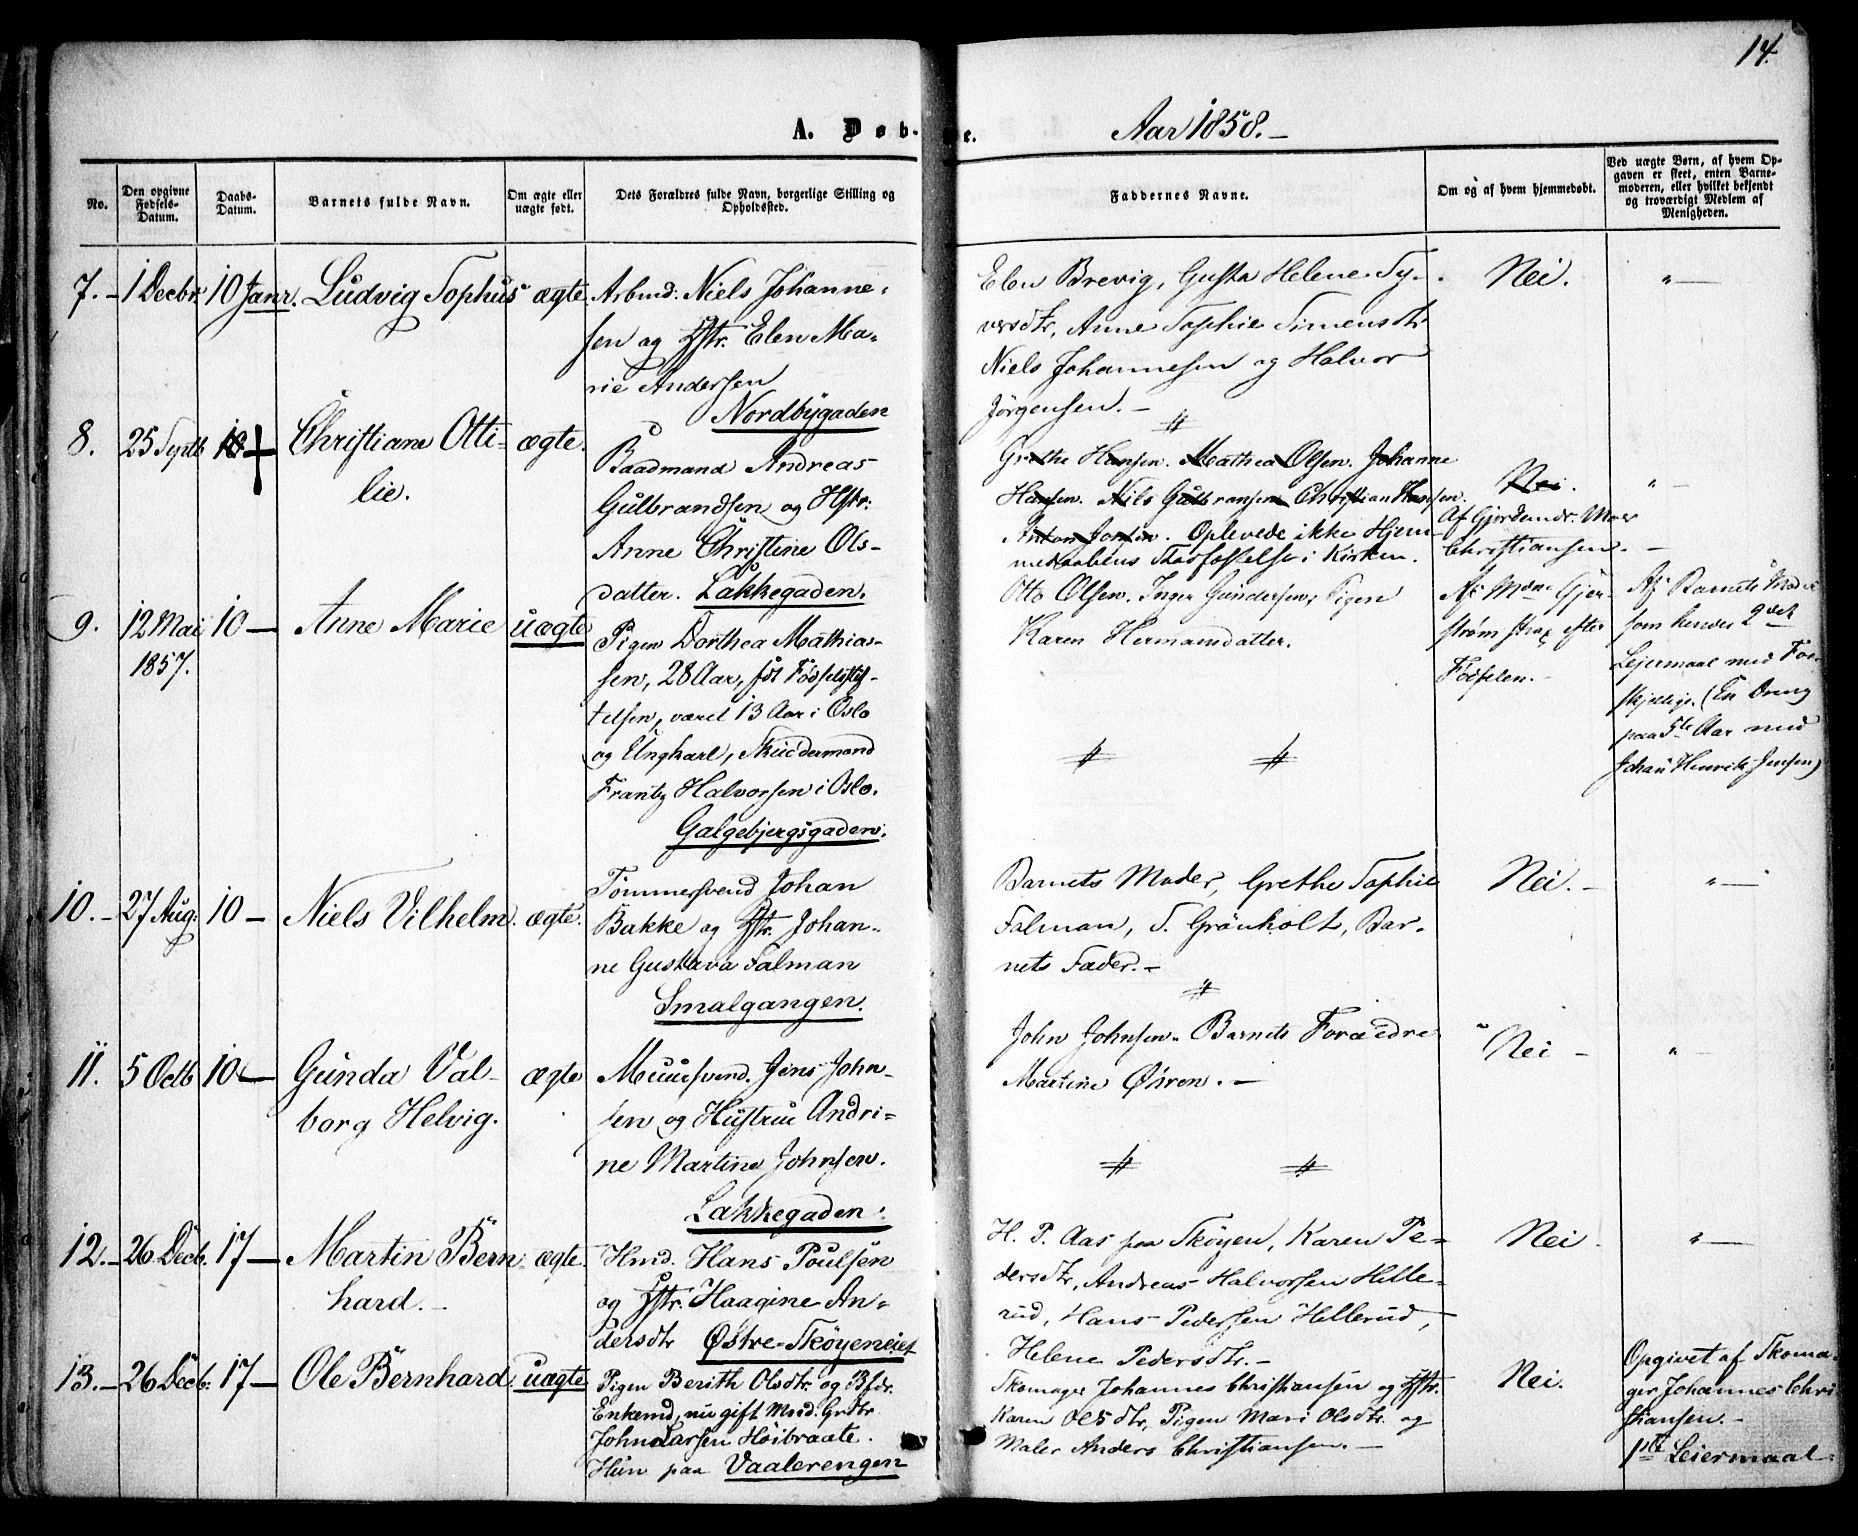 14.
A. Døb-
e.
Aar 1858.-
No.
Den opgivne Fødsels-Datum.
Daabs-Datum.
Barnets fulde Navn.
Om ægte eller uægte født.
Dets Forældres fulde Navn, borgerlige Stilling og Opholdsted.
Faddernes Navne.
Om og af hvem hjemmedøbt.
Ved uægte Børn, af hvem Op-
gaven er skeet, enten Barne-
moderen, eller hvilket bekjendt
og troværdigt Medlem af
Menigheden.
7. - 1 Decbr. 10 Janr. Ludvig Sophus ægte.
Arbmd: Niels Johanne-
sen og Hstr. Elen Ma-
rie Andersen
Nordbygaden
Elen Brevig, Gusta Helene Sy-
versdtr, Anne Sophie Simensdtr
Niels Johannesen og Halvor
Jörgensen. -
Nei.
"-
8. 25 Septb 10 Christiane Otti-
lie.
ægte.
Baadmand Andreas
Gulbrandsen og Hstr:
Anne Christine Ols-
datter. Lakkegaden.
Grethe Hansen. Mathea Olsen. Johanne
Hansen. Nils Gulbransen Christian Hansen.
Anton Jonsen. Oplevede ikke Hjem-
medaabens Stadfæstelse i Kirken.
Nei.
Af Gjordemdr. Moer
Christiansen.
" -
9. 12 Mai
1857.
10 - Anne Marie uægte
Pigen Dorthea Mathias-
sen, 28 Aar, föt Födselsstif-
telsen, været 13 Aar i Oslo
og Ungkarl, Skuddermand
Frantz Halvorsen i Oslo.
Galgebjergsgaden.
Otto Olsen. Inger Gundersen, Pigen
Karen Hermansdatter.
Af Mdme Gjer-
strøm strax efter
Födselen. -
Af Barnets Moder
som hendes 2det
Lejermaal med For-
skjellige. (En Dreng
paa 5te Aar med
Johan Henrik Jensen)
10. - 27 Aug: 10 - Niels Vilhelm. ægte.
Tömmersvend Johan
Bakke og Hstr. Johan-
ne Gustava Falman
Smalgangen.
Barnets Moder, Grethe Sophie
Falman, S. Grönholt, Bar-
nets Fader. -
Nei. -
" -
11. 5 Octb 10 - Gunda Val-
borg Helvig.
ægte
Muursvend. Jens John-
sen og Hustrue Andri-
ne Martine Johnsen.
Lakkegaden.
John Johnsen. Barnets Forældre
Martine Øsren. -
Nei -
" -
12. - 26 Decb. 17 - Martin Bern-
hard. -
ægte.
Hmd. Hans Poulsen
og Hstr. Haagine An-
dersdtr Østre-Skøyeneiet
H. P. Aas paa Skøyen, Karen Pe-
dersdtr, Andreas Halvorsen Helle-
rud, Hans Pedersen Hellerud,
Helene Pedersdtr. -
Nei
" -
13. - 26 Decb: 17 - Ole Bernhard. uægte
Pigen Berith Olsdtr. og Bfdr.
Enkemd, nu gift Mmd. Grdbr.
John Larsen Höibraate.
Hun paa Vaalerengen
Skomager Johannes Christiansen og Hstr.
Karen Olsdtr, Pigen Mari Olsdtr. og
Maler Anders Christiansen. -
Nei.
Opgivet af Skoma-
ger Johannes Chri-
stiansen. -
1ste Leiermaal